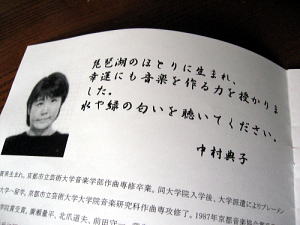 琵琶湖のほとりに生まれ、
幸運にも音楽を作る力を授かりま
した。
水や緑の匂いを聴いてください。
中村典子
賀県生まれ。京都市立芸術大学音楽学部作曲専修卒業。同大学院入学後、大学派遣によりブレーメン
大学へ留学。京都市立芸術大学大学院音楽研究科作曲専攻修了。1987年京都音楽協会賞
学院賞受賞。廣瀬量平、北爪道夫、前田守一、